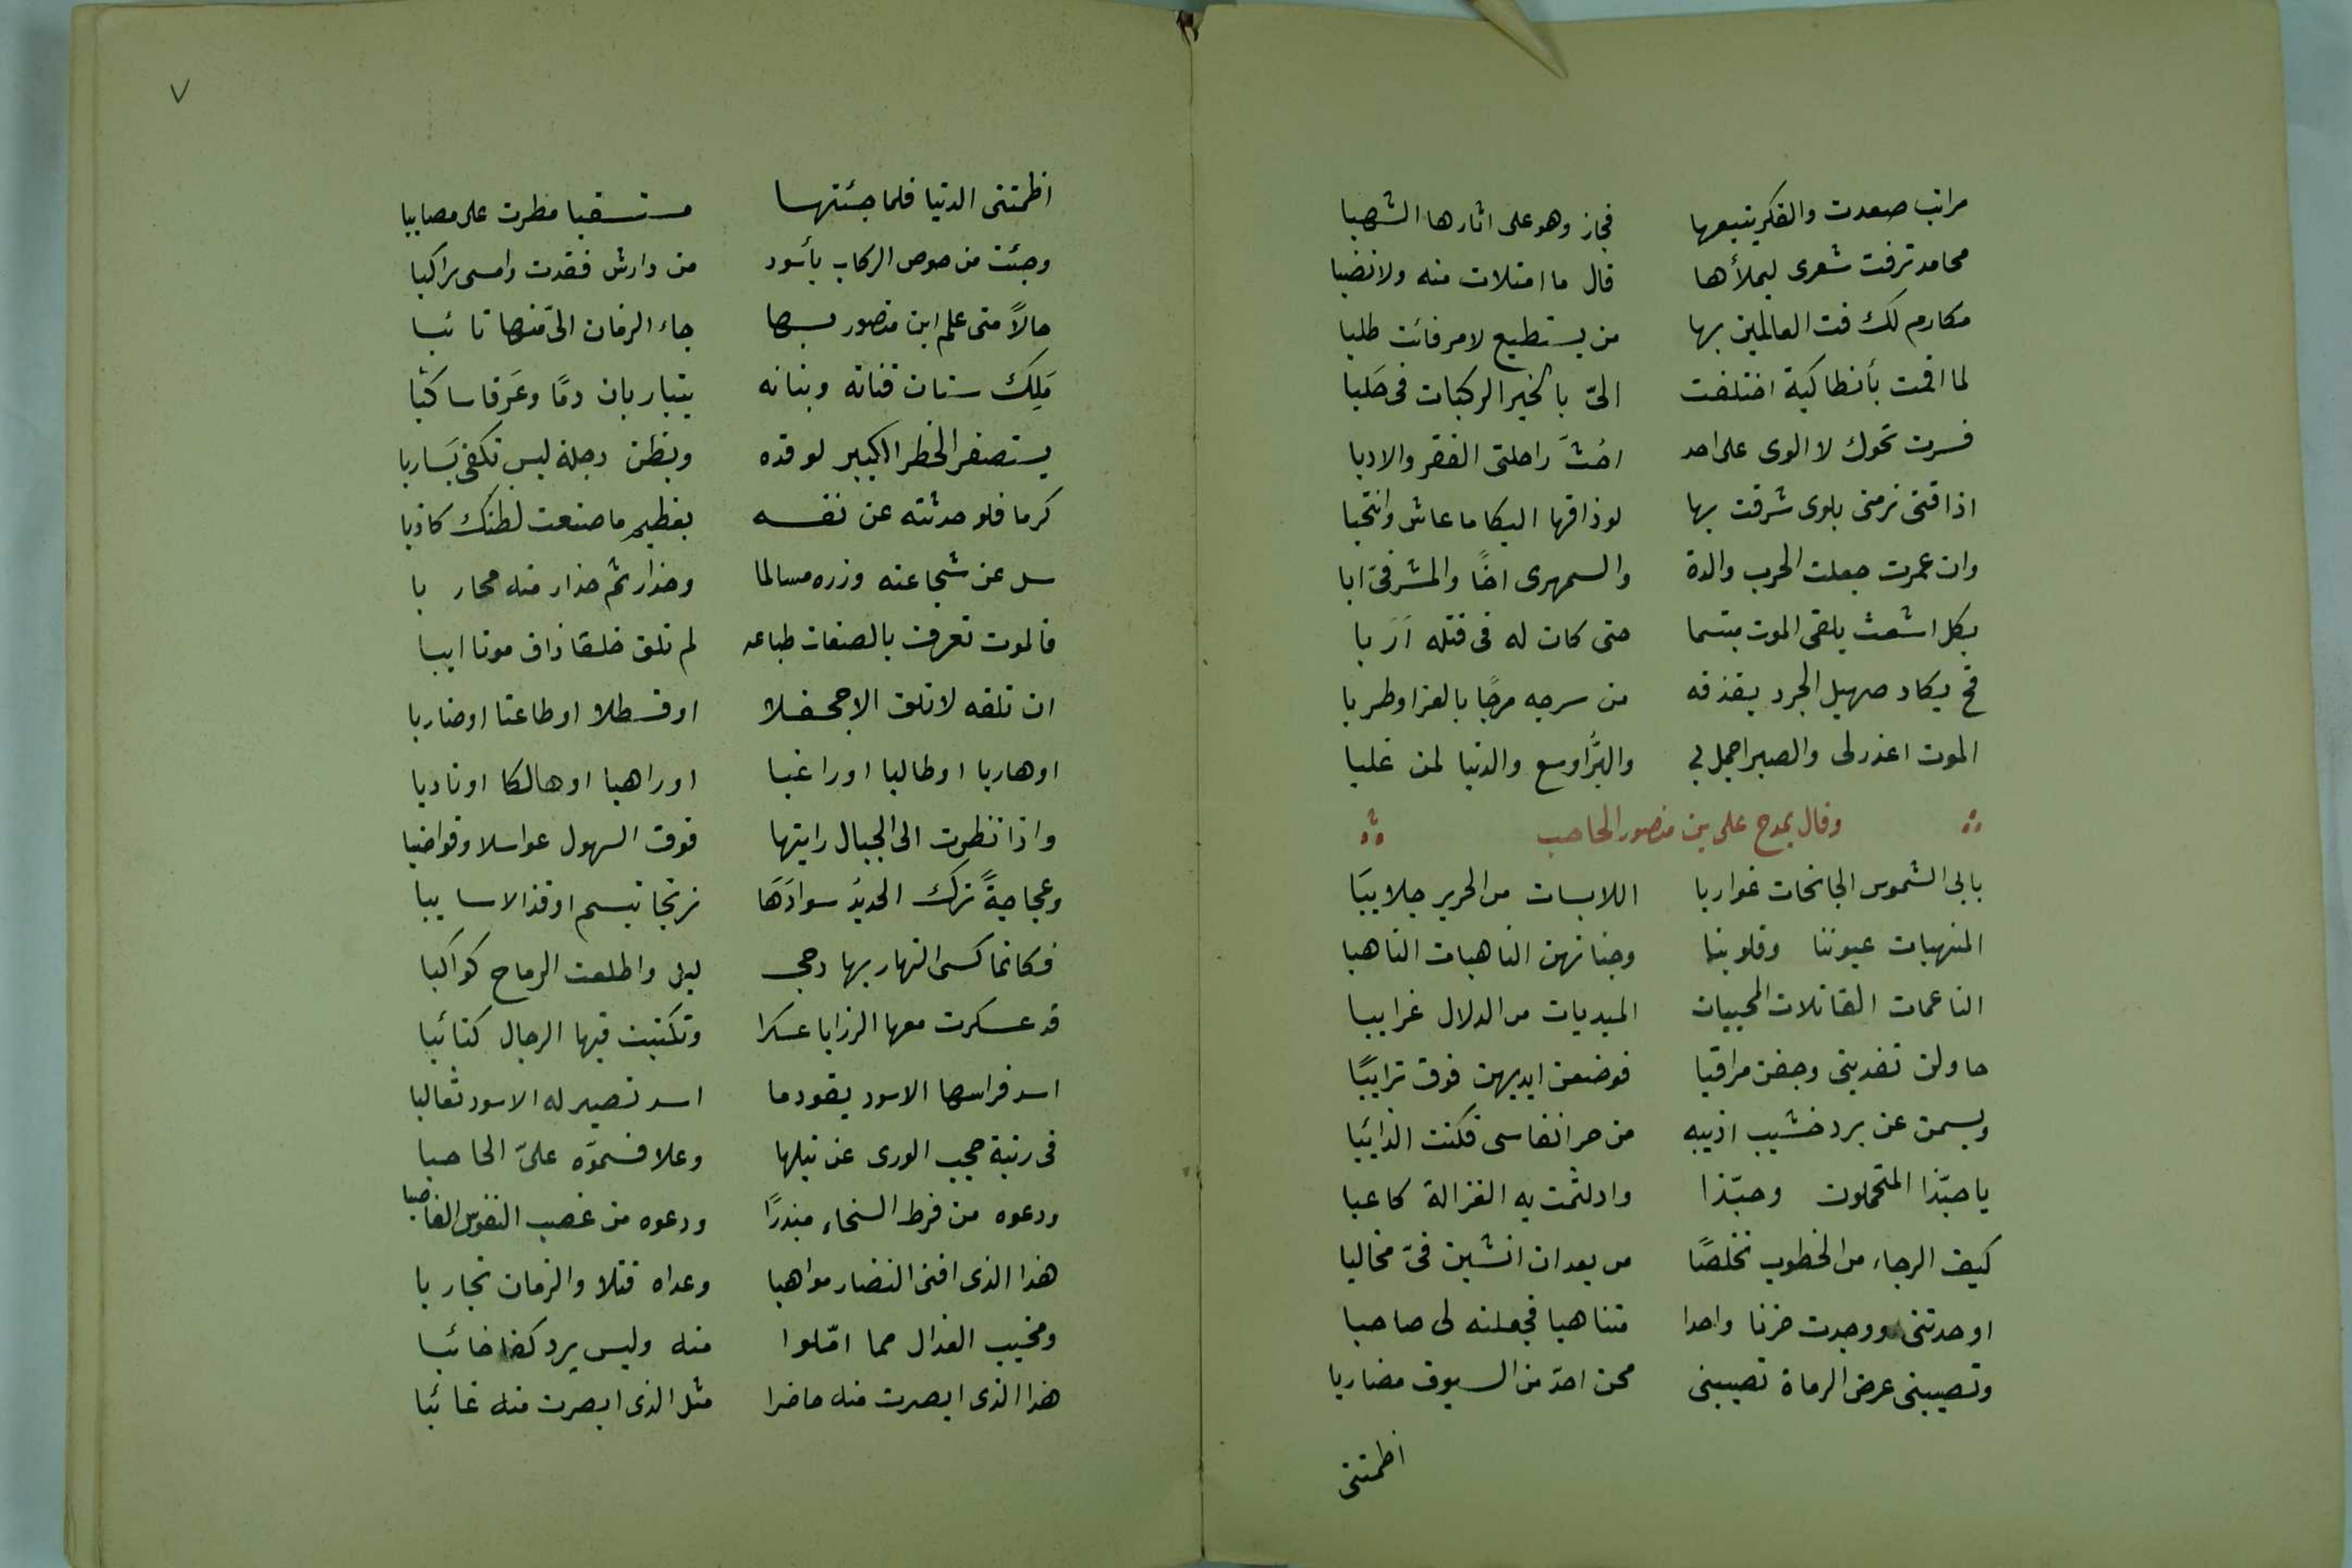 مراتب صعدت والفكر يتبعها فجاز وهو على اثارها الشهبا
محامد نزفت شعرى ليملأها قال ما امتلات منه ولا نضبا
مكارم لك فت العالمين بها من يستطيع لامر فائت طلبا
لما اقمت بأنطاكية اختلفت الىّ بالخير الركبات فى حَلبا
فسرت نحوك لا الوى على احد احُثّ راحلتى الفقر والادبا
اذاقنى زمنى بلوى شرقت بها لو ذاقها البكا ما عاش وانتحبا
وان عمرت جعلت الحرب والدة والسمهرى اخًا والمشرفىّ ابا
بكل اشعث يلقى الموت مبتسما حتى كان له فى قتله اَرَبا
قح يكاد صهيل الجرد يقذفه من سرجه مرحًا بالغزا وطربا
الموت اعذر لى والصبر اجمل بى والبرّ اوسع والدنيا لمن غلبا
وقال يمدح على بن منصور الحاجب
بابى الشموس الجانحات غواربا اللابسات من الحرير جلاببَا
المنهبات عيوننا وقلوبنا وجناتهن الناهبات الناهبا
الناعمات القاتلات المحييات المبديات من الدلال غرايبا
حاولن تفديتى وخفن مراقبا فوضعن ايديهن فوق ترايبًا
وبسمن عن برد خشيب اذيبه من حر انفاسى فكنت الذائبا
يا حبّذا المتحملون وحبّذا واد لثمت به الغزالة كاعبا
كيف الرجاء من الخطوب تخلصًا من بعد ان انشبن فىّ مخالبا
اوحدتنى ووجدت حزنا واحدا متناهيا فجعلنه لى صاحبا
وتصيبنى عرض الرماة تصيبنى محن احدّ من السيوف مضاربا
اظمتنى
٧
اظمتنى الدنيا فلما جئتها مستسقيا مطرت على مصايبا
وجئت من خوص الركاب بأسود من دارش فقدت وامسى راكبا
حالاً متى علم ابن منصور بها جاء الزمان الىّ منها تائبا
مَلِك سنان قناته وبنانه يتباريان دمًا وعَرفا ساكبا
يستصغر الخطر الكبير لوفده ويظن دجلة ليس تكفى شاربا
كرما فلو حدثته عن نفسه بعظيم ما صنعت لظنك كاذبا
سل عن شجاعته وزره مسالما وحذار ثم حذار منه محاربا
فالموت تعرف بالصفات طباعه لم تلق خلقا ذاق موتا ايبا
ان تلقه لا تلق الا جحفلا او قسطلا او طاعنا او ضاربا
او هاربا او طالبا او راغبا او راهبا او هالكا او نادبا
واذا نظرت الى الجبال رايتها فوق السهول عواسلا وقواضبا
وعجاجةً ترك الحديدُ سوادَهَا زنجا تبسم او قذالا سايبا
فكانما كسى النهار بها دجى ليل واطلعت الرماح كواكبا
قد عسكرت معها الرزايا عسكرا وتكتبت فيها الرجال كتائبا
اسد فراسها الاسود يقودها اسد تصير له الاسود ثعالبا
فى رتبة حجب الورى عن نيلها وعلا فسموّه علىّ الحاجبا
ودعوه من فرط السخاء مبذرًا ودعوه من غصب النفوس الغاصبا
هذا الذى افنى النضار مواهبا وعداه قتلا والزمان تجاربا
ومخيب العذال مما امّلوا منه وليس يرد كفا خائبا
هذا الذى ابصرت منه حاضرا مثل الذى ابصرت منه غائبا